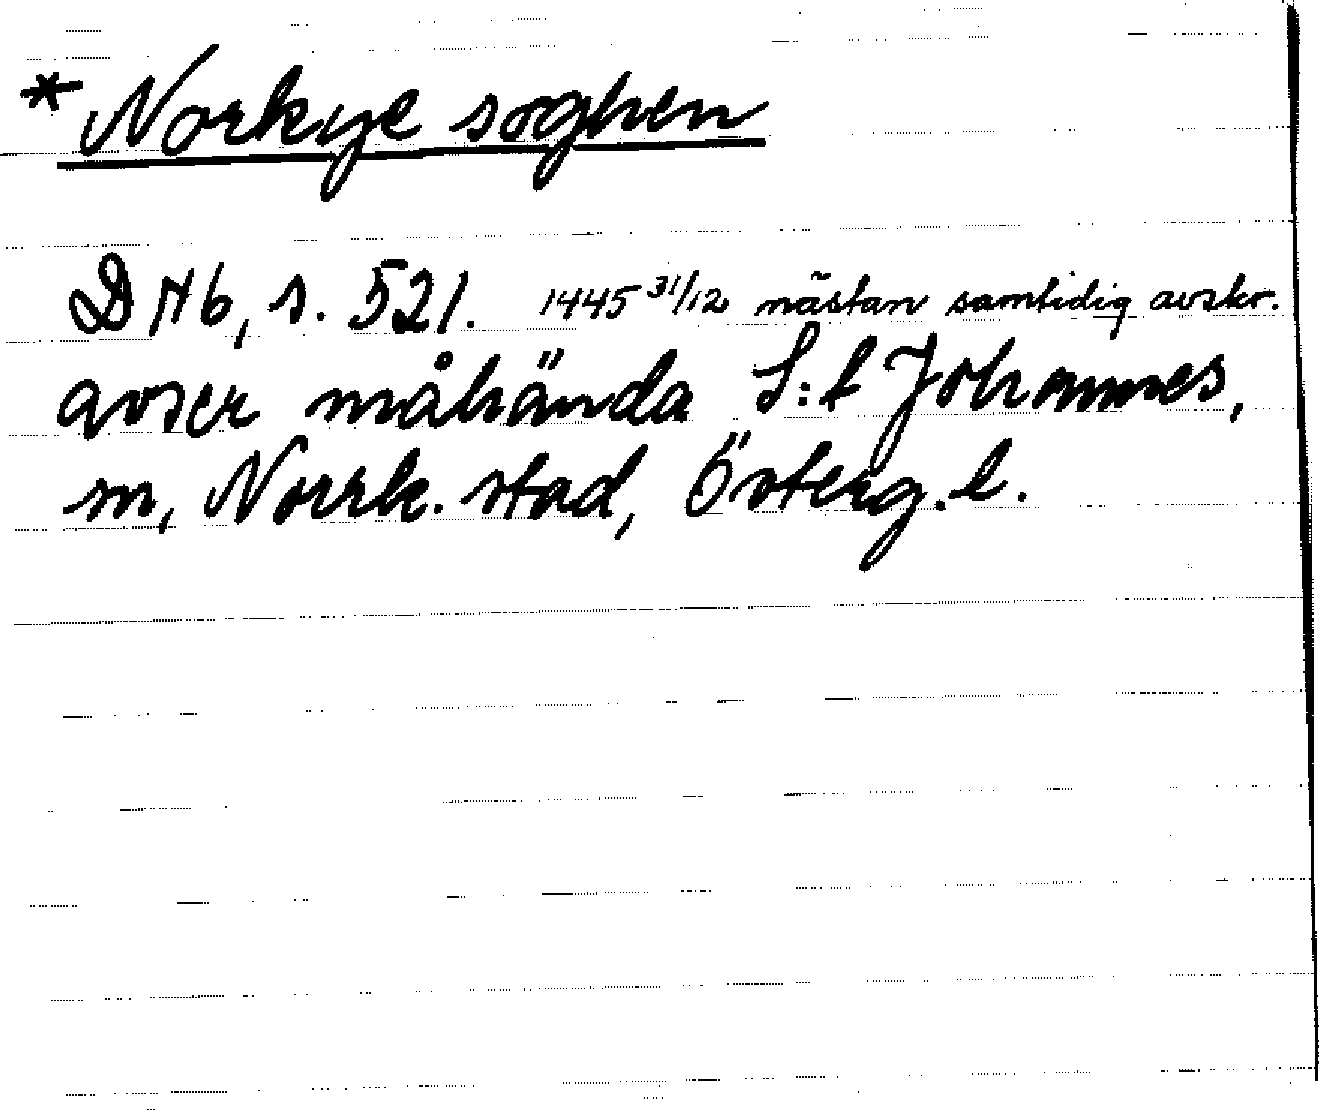 * Norkye soghen
D Ab, s. 521. 1445 31/12 nästan samtidig avskr.
avser måhända S:t Johannes,
sn, Norrk. stad, Österg. l.